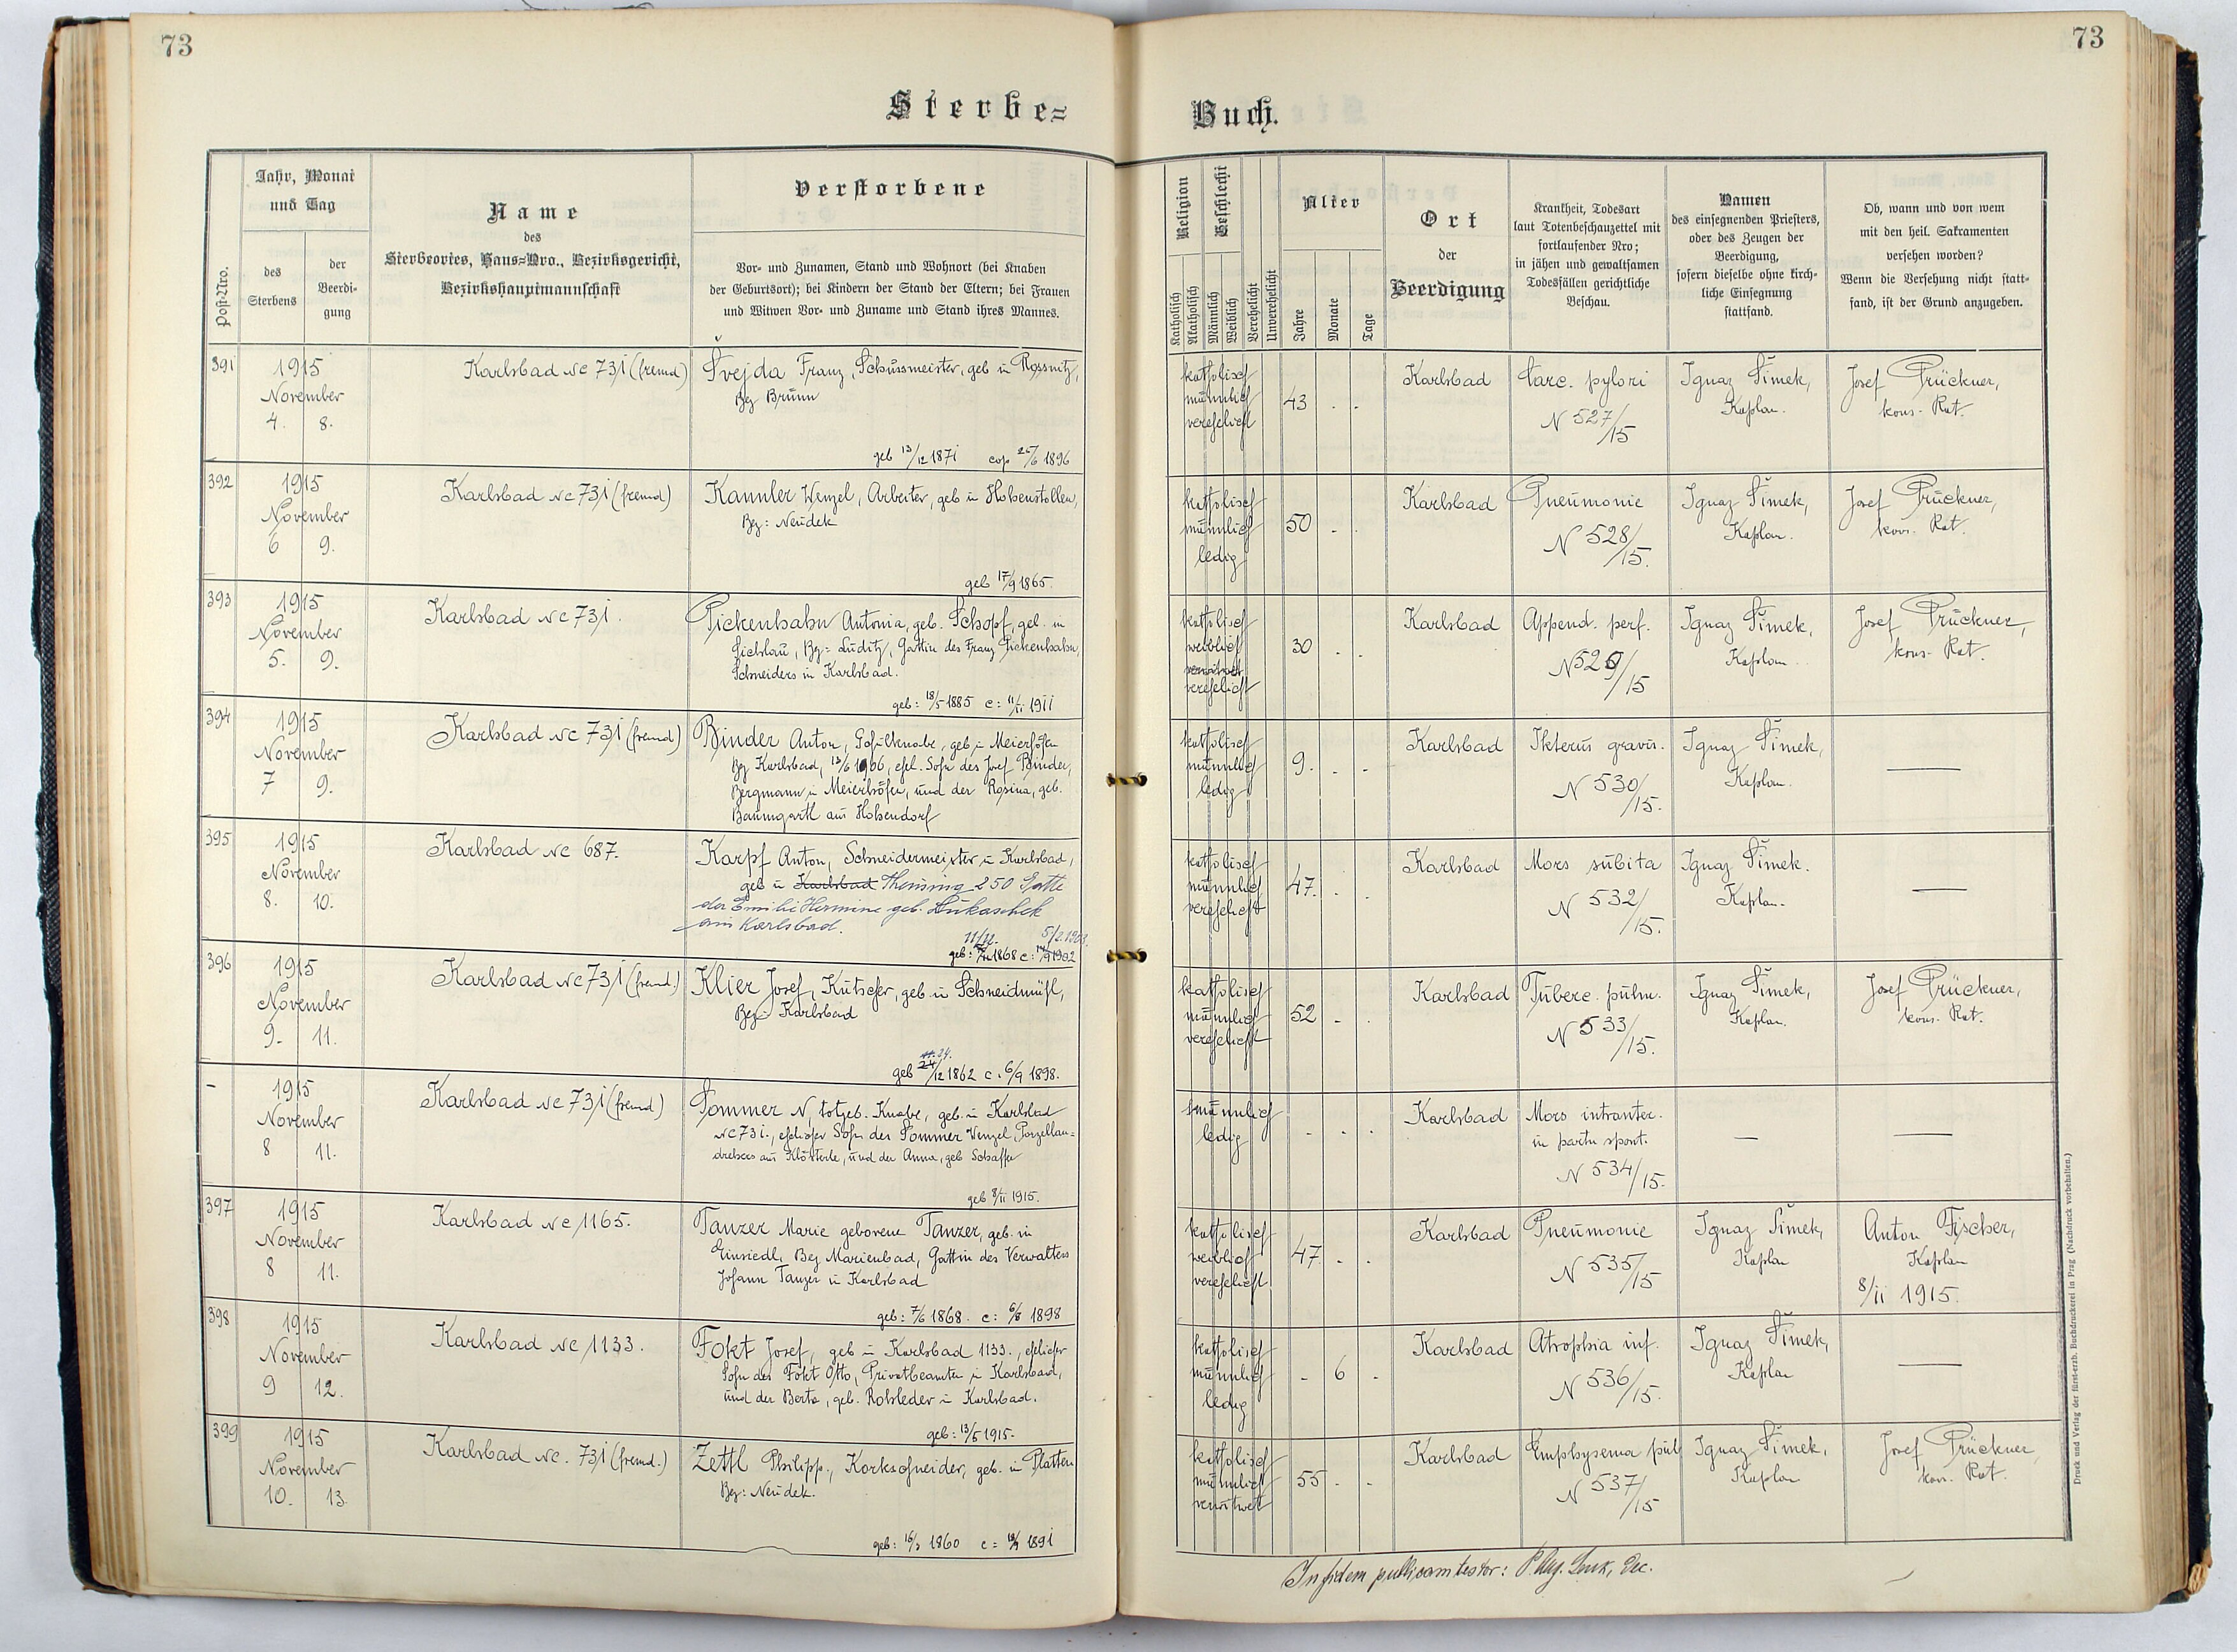 73
73
Sterbe=
Buch.
Post-Nro.
Jahr, Monat
und Tag
des
Sterbens
der
Beerdi-
gung
Name
des
Sterbeortes, Haus=Nro., Bezirksgericht,
Bezirkshauptmannschaft
Verstorbene
Vor- und Zunamen, Stand und Wohnort (bei Knaben
der Geburtsort); bei Kindern der Stand der Eltern; bei Frauen
und Witwen Vor- und Zuname und Stand ihres Mannes.
Religion
Katholisch
Akatholisch
Geschlecht
Männlich
Weiblich
Verehelicht
Unverehelicht
Alter
Jahre
Monate
Tage
Ort
der
Beerdigung
Krankheit, Todesart
laut Totenbeschauzettel mit
fortlaufender Nro;
in jähen und gewaltsamen
Todesfällen gerichtliche
Beschau.
Namen
des einsegnenden Priesters,
oder des Zeugen der
Beerdigung,
sofern dieselbe ohne kirch-
liche Einsegnung
stattfand.
Ob, wann und von wem
mit den heil. Sakramenten
versehen worden?
Wenn die Versehung nicht statt-
fand, ist der Grund anzugeben.
391
1915
November
4. 8.
Karlsbad Nc 731 (fremd)
Švejda Franz, Schussmeister, geb in Rossnitz,
Bez Brünn
geb 13/12 1871 cop 25/6 1896
katholisch
männlich
verehelicht
43 . .
Karlsbad
Carc. pylori
N 527/15
Ignaz Šimek,
Kaplan.
Josef Prückner,
kons. Rat.
392
1915
November
6 9.
Karlsbad Nc 731 (fremd)
Kannler Wenzel, Arbeiter, geb in Hohenstollen,
Bez: Neudek
geb 17/9 1865.
katholisch
männlich
ledig
50 . .
Karlsbad
Pneumonie
N 528/15.
Ignaz Šimek,
Kaplan.
Josef Prückner,
kons. Rat.
393
1915
November
5. 9.
Karlsbad Nc 731.
Pickenhahn Antonia, geb. Schopf, geb. in
Sichlau, Bez: Luditz, Gattin des Franz Pickenhahn,
Schneiders in Karlsbad.
geb: 18/5 1885 c: 11/11 1911
katholisch
weiblich
verwitwet
verehelicht
30 . .
Karlsbad
Append. perf.
N 529/15
Ignaz Šimek,
Kaplan.
Josef Prückner,
kons. Rat.
394
1915
November
7 9.
Karlsbad Nc 731 (fremd)
Binder Anton, Schulknabe, geb in Meierhöfen
Bez Karlsbad, 13/6 1906, ehel. Sohn des Josef Binder,
Bergmann in Meierhöfen, und der Rosina, geb.
Baumgartl aus Hohendorf
katholisch
männlich
ledig
9. . .
Karlsbad
Ikterus gravis.
N 530/15.
Ignaz Šimek,
Kaplan.
—
395
1915
November
8. 10.
Karlsbad Nc 687.
Karpf Anton, Schneidermeister in Karlsbad,
geb in Karlsbad Theusing 250 Gatte
der Emilie Hermine geb. Lukaschek
aus Karlsbad.
11/12. 5/2.1903.
1868 c: 1902
katholisch
männlich
verehelicht
47. . .
Karlsbad
Mors subita
N 532/15.
Ignaz Šimek.
Kaplan.
—
396
1915
November
9. 11.
Karlsbad Nc 731 (fremd.)
Klier Josef, Kutscher, geb in Schneidmühl,
Bez: Karlsbad
geb 24/12 1862 c. 6/9 1898.
katholisch
männlich
verehelicht
52 . .
Karlsbad
Tuberc. pulm.
N 533/15.
Ignaz Šimek,
Kaplan.
Josef Prückner,
kons. Rat.
-
1915
November
8 11.
Karlsbad Nc 731 (fremd)
Sommer N, totgeb. Knabe, geb. in Karlsbad
Nc 731., ehelicher Sohn des Sommer Wenzel Porzellan=
drehers aus Klösterle, und der Anna, geb Schaffer
geb 8/11 1915.
männlich
ledig
. . .
Karlsbad
Mors intranter.
in partu spont.
N 534/15.
—
—
397
1915
November
8 11.
Karlsbad Nc 1165.
Tanzer Marie geborene Tanzer, geb. in
Einsiedl, Bez Marienbad, Gattin des Verwalters
Johann Tanzer in Karlsbad
geb: 7/6 1868. c: 6/8 1898
katholisch
weiblich
verehelicht.
47. . .
Karlsbad
Pneumonie
N 535/15
Ignaz Šimek,
Kaplan
Anton Fischer,
Kaplan
8/11 1915.
398
1915
November
9 12.
Karlsbad Nc 1133.
Fokt Josef, geb in Karlsbad 1133., ehelicher
Sohn des Fokt Otto, Privatbeamter in Karlsbad,
und der Berta, geb. Rohrleder in Karlsbad.
geb: 13/5 1915.
katholisch
männlich
ledig
- 6 .
Karlsbad
Atrophia inf.
N 536/15.
Ignaz Šimek,
Kaplan
—
399
1915
November
10. 13
Karlsbad Nc. 731 (fremd.)
Zettl Philipp., Korkschneider, geb. in Platten
Bez: Neudek.
geb: 16/3 1860 c: 1891
katholisch
männlich
verwitwet
55 . .
Karlsbad
Emphysema pul
N 537/15
Ignaz Šimek,
Kaplan
Josef Prückner
kons. Rat.
In fidem publicam testor:
Druck und Verlag der fürst-erzb. Buchdruckerei in Prag (Nachdruck vorbehalten.)